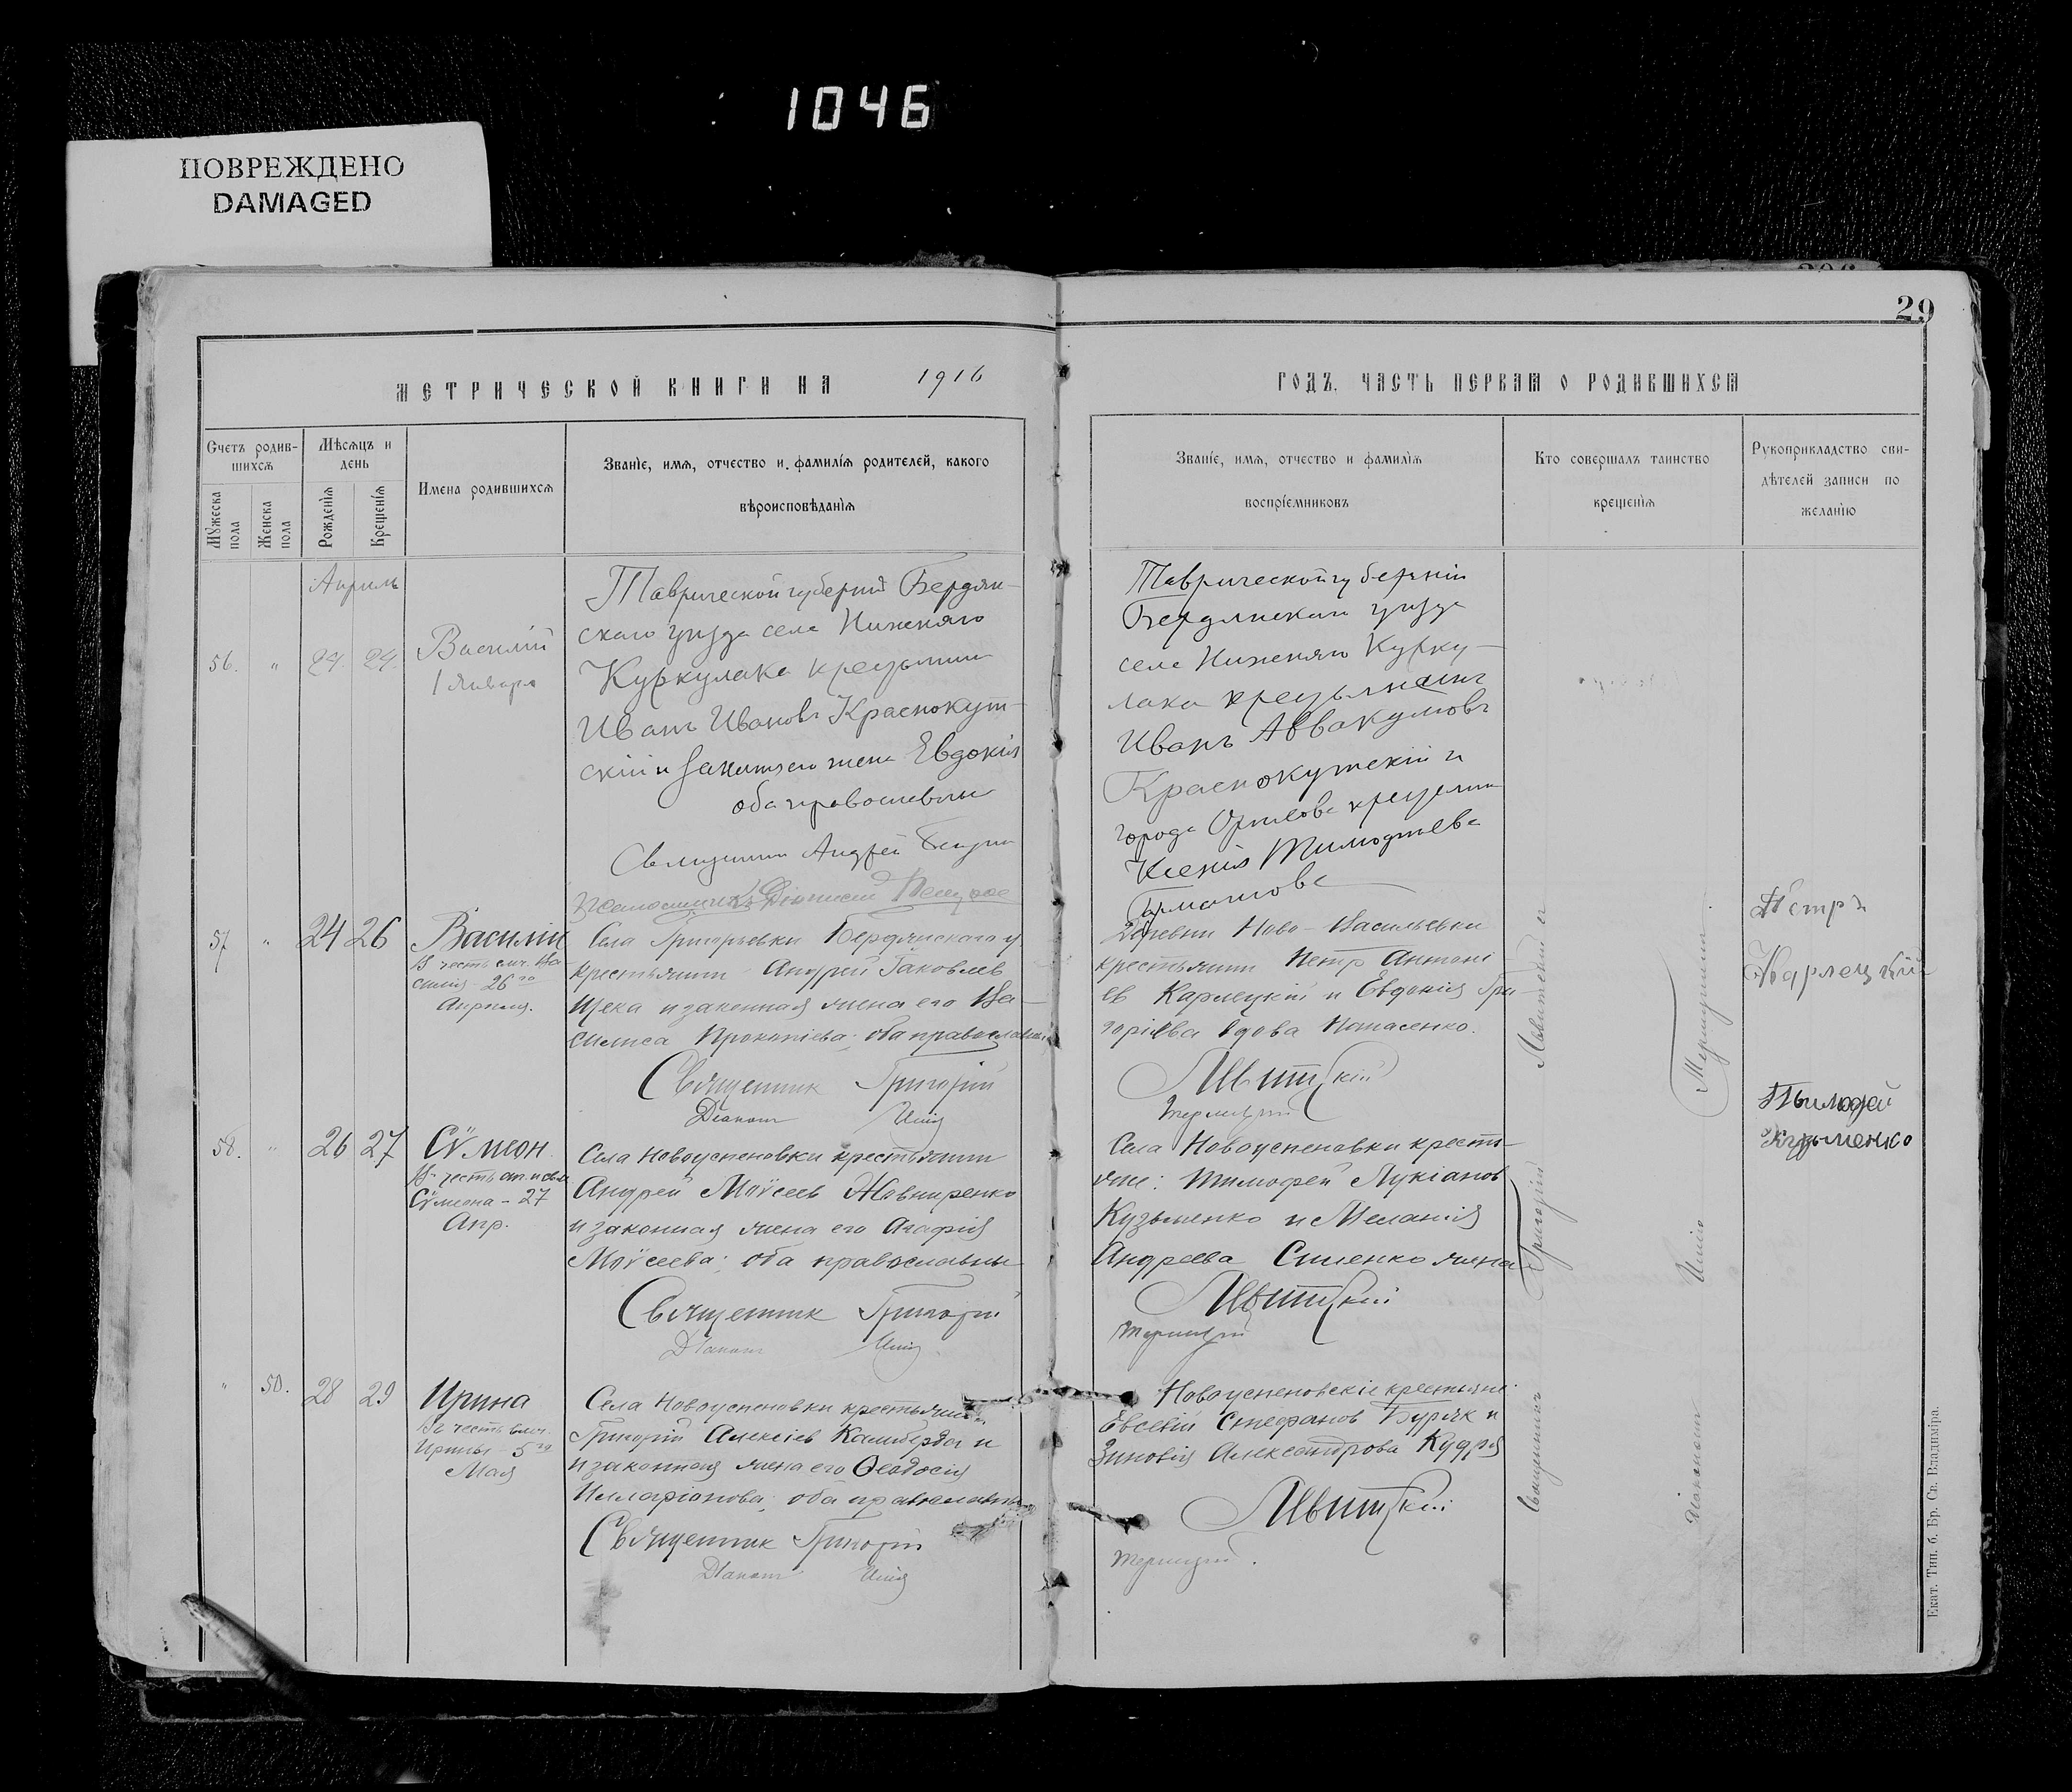 1046
ПОВРЕЖДЕНО
DAMAGED
29
МЕТРИЧЕСКОЙ КНИГИ НА 1916
ГОДЪ, ЧАСТЬ ПЕРВАЯ О РОДИВШИХСЯ
Счетъ родив-
шихся
Мужеска пола
Женска пола
Мѣсяцъ и
день
Рожденія
Крещенія
Имена родившихся
Званіе, имя, отчество и фамилія родителей, какого
вѣроисповѣданія
Званіе, имя, отчество и фамилія
воспріемниковъ
Кто совершалъ таинство
крещенія
Рукоприкладство сви-
дѣтелей записи по
желанію
Апрель
56. " 24. 24.
Василій
1 Января
Таврической губерніи Бердян-
скаго уезда села Нижняго
Куркулака
Иванъ Ивановъ Краснокут-
скій и жена Евдокія
оба православны
Андрей
Таврической губерніи
Бердянскаго уезда
села Нижняго Курку-
лака
Иванъ Аввакумовъ
Краснокутскій и
города Орехова
Ксенія Тимофеева
57 " 24 26
Василій
В честь смч. Ва-
силія 26го
Апреля.
Села Григорьевки Бердянскаго у.
крестьянин Андрей Іаковлев
и законная жена его Ва-
силиса Прокопіева; оба православны
Священник Григорій
Діакон
Деревни Ново-Васильевки
крестьянин Петр Антоні-
ев Карлецкій и Евдокія Гри-
горіева вдова
Петръ
Карлецкій
58. " 26 27
Сѵмеон
В честь ап. и свм.
Сѵмеона - 27
Апр.
Села Новоуспеновки крестьянин
Андрей Моѵсеев Жовниренко
и законная жена его Агафія
Моѵсеева; оба православны
Священник Григорій
Діакон
Села Новоуспеновки крестья-
яне: Тимофей Лукіанов
Кузьменко и Меланія
Андреева жена
Тымофей
Кузьменко
" 50. 28 29
Ирина
В честь вмч.
Ирины - 5го
Мая
Села Новоуспеновки крестьянин
Григорій Алексіев и
и законная жена его Ѳеодосія
Илларіонова; оба православны
Священник Григорій
Діакон
Новоуспеновскіе крестьяне:
Евсевій Стефанов Буряк и
Зиновія Александрова Кудря
Священникъ Григорій
Екат. Тип. б. Бр. Св. Владиміра.